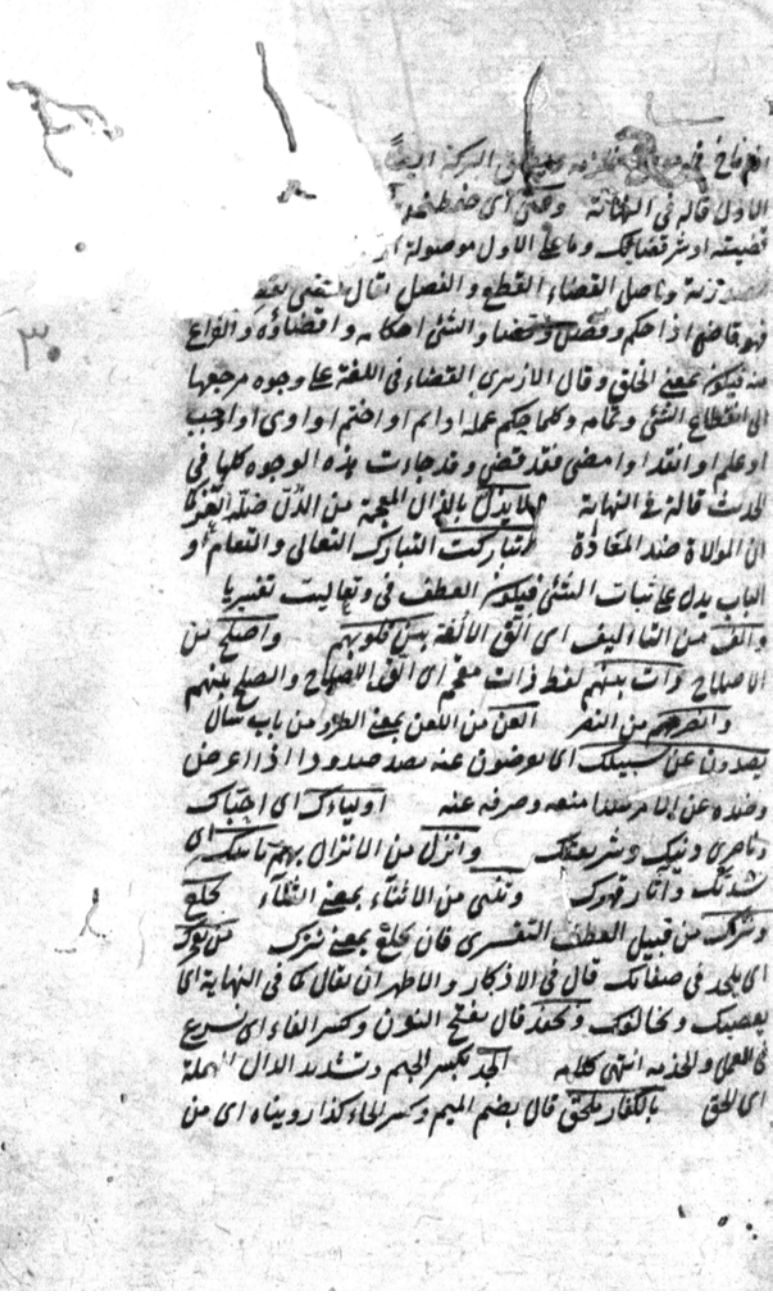 الاول قاله فى النهاية وقنى اى
قضيته او شر قضائك وما على الاول موصولة
واصل القضاء القطع والفصل يقال قضى يقضى
فهو قاض اذا حكم وفصل وقضاء الشئ احكامه وامضاؤه والفراغ
منه فيكون بمعنى الخلق وقال الازهرى القضاء فى اللغة على وجوه مرجعها
الى انقطاع الشئ وتمامه وكلما حكم عمله او اتم او اختم او ادى او اوجب
او علم او انفذ او امضى فقد قضى وقد جاءت هذه الوجوه كلها فى
الحديث قاله فى النهاية لا يذل بالذال المعجمة من الذل ضد العز كما
ان الموالاة ضد المعاداة تباركت التبارك التعالى والتعاظم او
الباب يدل على ثبات الشئ فيكون العطف فى وتعاليت تفسيريا
والف من التأليف اى الق الالفة بين قلوبهم واصلح من
الاصلاح ذات بينهم لفظ ذات مقحم اى الق الاصلاح والصلح بينهم
وانصرهم من النصر العن من اللعن بمعنى الطرد من باب سأل
يصدون عن سبيلك اى يعرضون عنه يصد صدودا اذا اعرض
وصده عن الامر صدا منعه وصرفه عنه اولياءك اى احبائك
وناصرى دينك وشريعتك وانزل من الانزال بهم باسك اى
شدتك وآثار قهرك ونثنى من الاثناء بمعنى الثناء نخلع
ونترك من قبيل العطف التفسيرى فان نخلع بمعنى نترك من يفجرك
اى يلحد فى صفاتك قال فى الاذكار والاظهر ان يقال كما فى النهاية اى
يعصيك ويخالفك ونحفد قال بفتح النون وكسر الفاء اى نسرع
فى العمل والخدمه انتهى كلامه الجد بكسر الجيم وتشديد الدال المهملة
اى الحق بالكفار ملحق قال بضم الميم وكسر الحاء كذا رويناه اى من